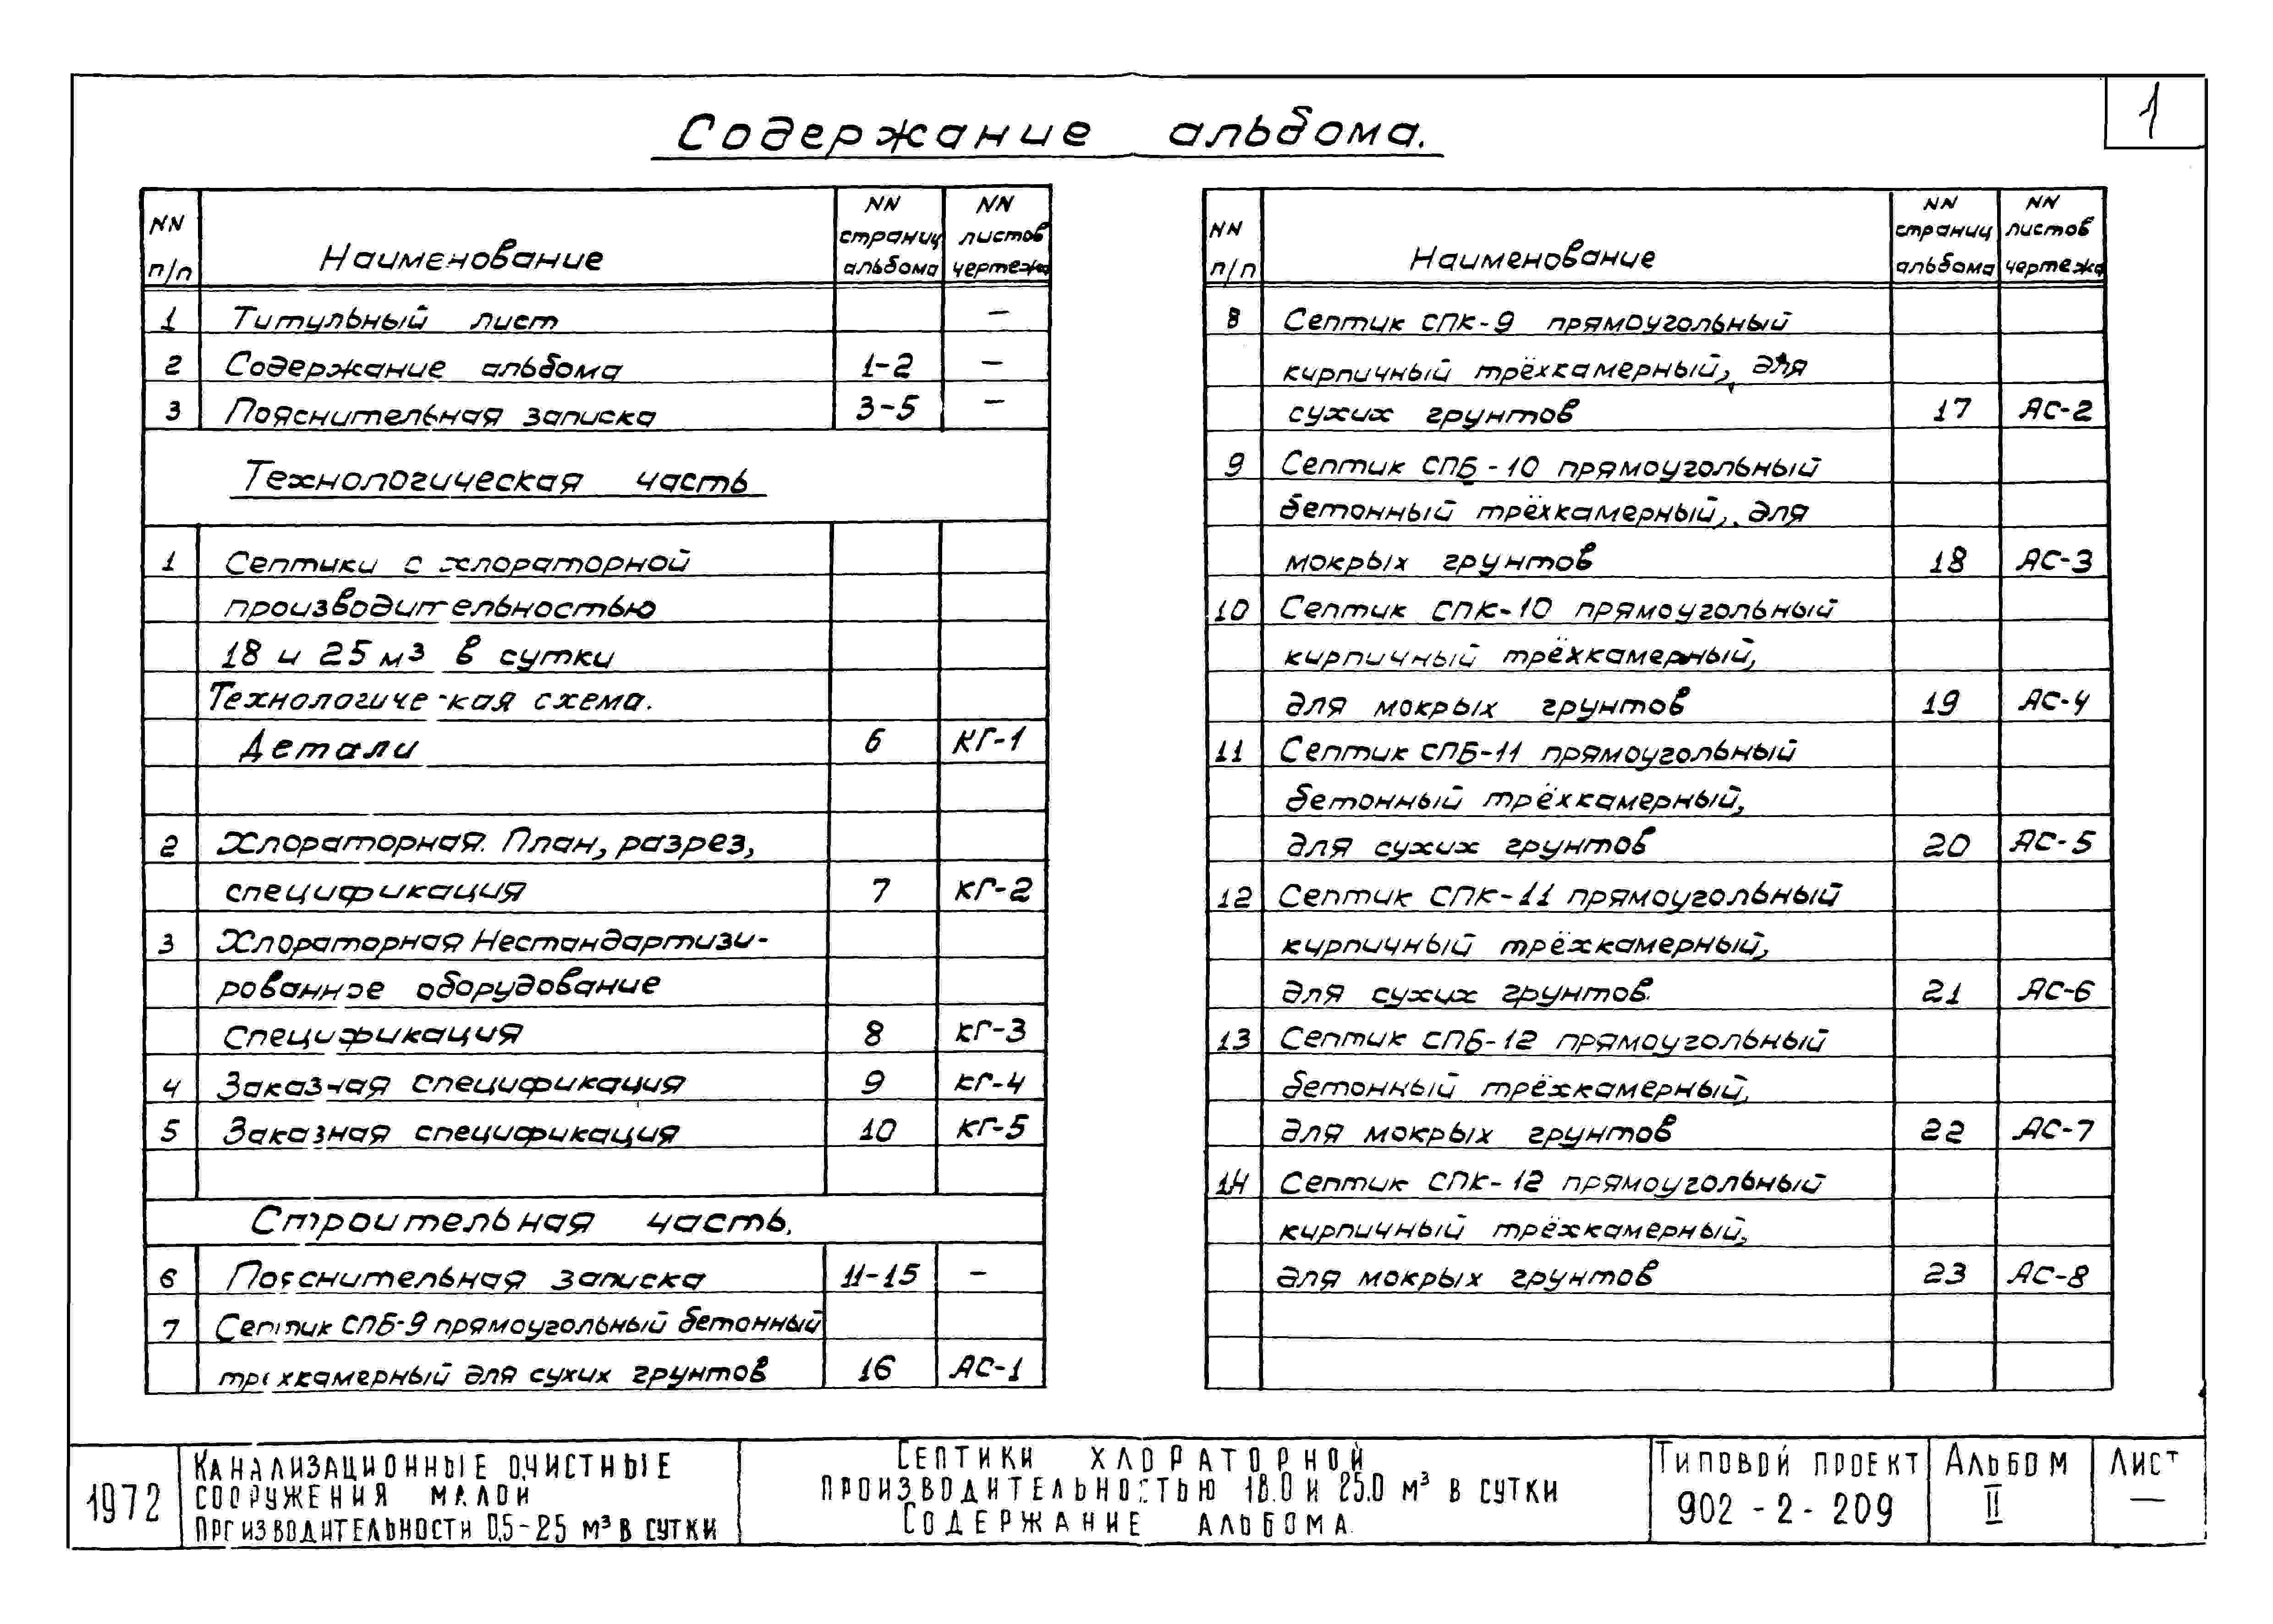 1
Содержание альбома.
NN п/п Наименование NN страниц альбома NN листов чертежа
1 Титульный лист —
2 Содержание альбома 1-2 —
3 Пояснительная записка 3-5 —
Технологическая часть
1 Септики с хлораторной
производительностью
18 и 25 м3 в сутки
Технологиче-кая схема.
Детали 6 КГ-1
2 Хлораторная. План, разрез,
спецификация 7 КГ-2
3 Хлораторная Нестандартизи-
рованное оборудование
Спецификация 8 КГ-3
4 Заказная спецификация 9 КГ-4
5 Заказная спецификация 10 КГ-5
Строительная часть.
6 Пояснительная записка 11-15 —
7 Септик СПБ-9 прямоугольный бетонный
трехкамерный для сухих грунтов 16 АС-1
NN п/п Наименование NN страниц альбома NN листов чертежа
8 Септик СПК-9 прямоугольный
кирпичный трёхкамерный, для
сухих грунтов 17 АС-2
9 Септик СПБ-10 прямоугольный
бетонный трёхкамерный, для
мокрых грунтов 18 АС-3
10 Септик СПК-10 прямоугольный
кирпичный трёхкамерный,
для мокрых грунтов 19 АС-4
11 Септик СПБ-11 прямоугольный
бетонный трёхкамерный,
для сухих грунтов 20 АС-5
12 Септик СПК-11 прямоугольный
кирпичный трёхкамерный,
для сухих грунтов. 21 АС-6
13 Септик СПБ-12 прямоугольный
бетонный трёхкамерный,
для мокрых грунтов 22 АС-7
14 Септик СПК-12 прямоугольный
кирпичный трёхкамерный,
для мокрых грунтов 23 АС-8
1972
Канализационные очистные
сооружения малой
производительности 0,5-25 м³ в сутки
Септики хлораторной
производительностью 18.0 и 25.0 м³ в сутки
Содержание альбома.
Типовой проект
902-2-209
Альбом
II
Лист
—